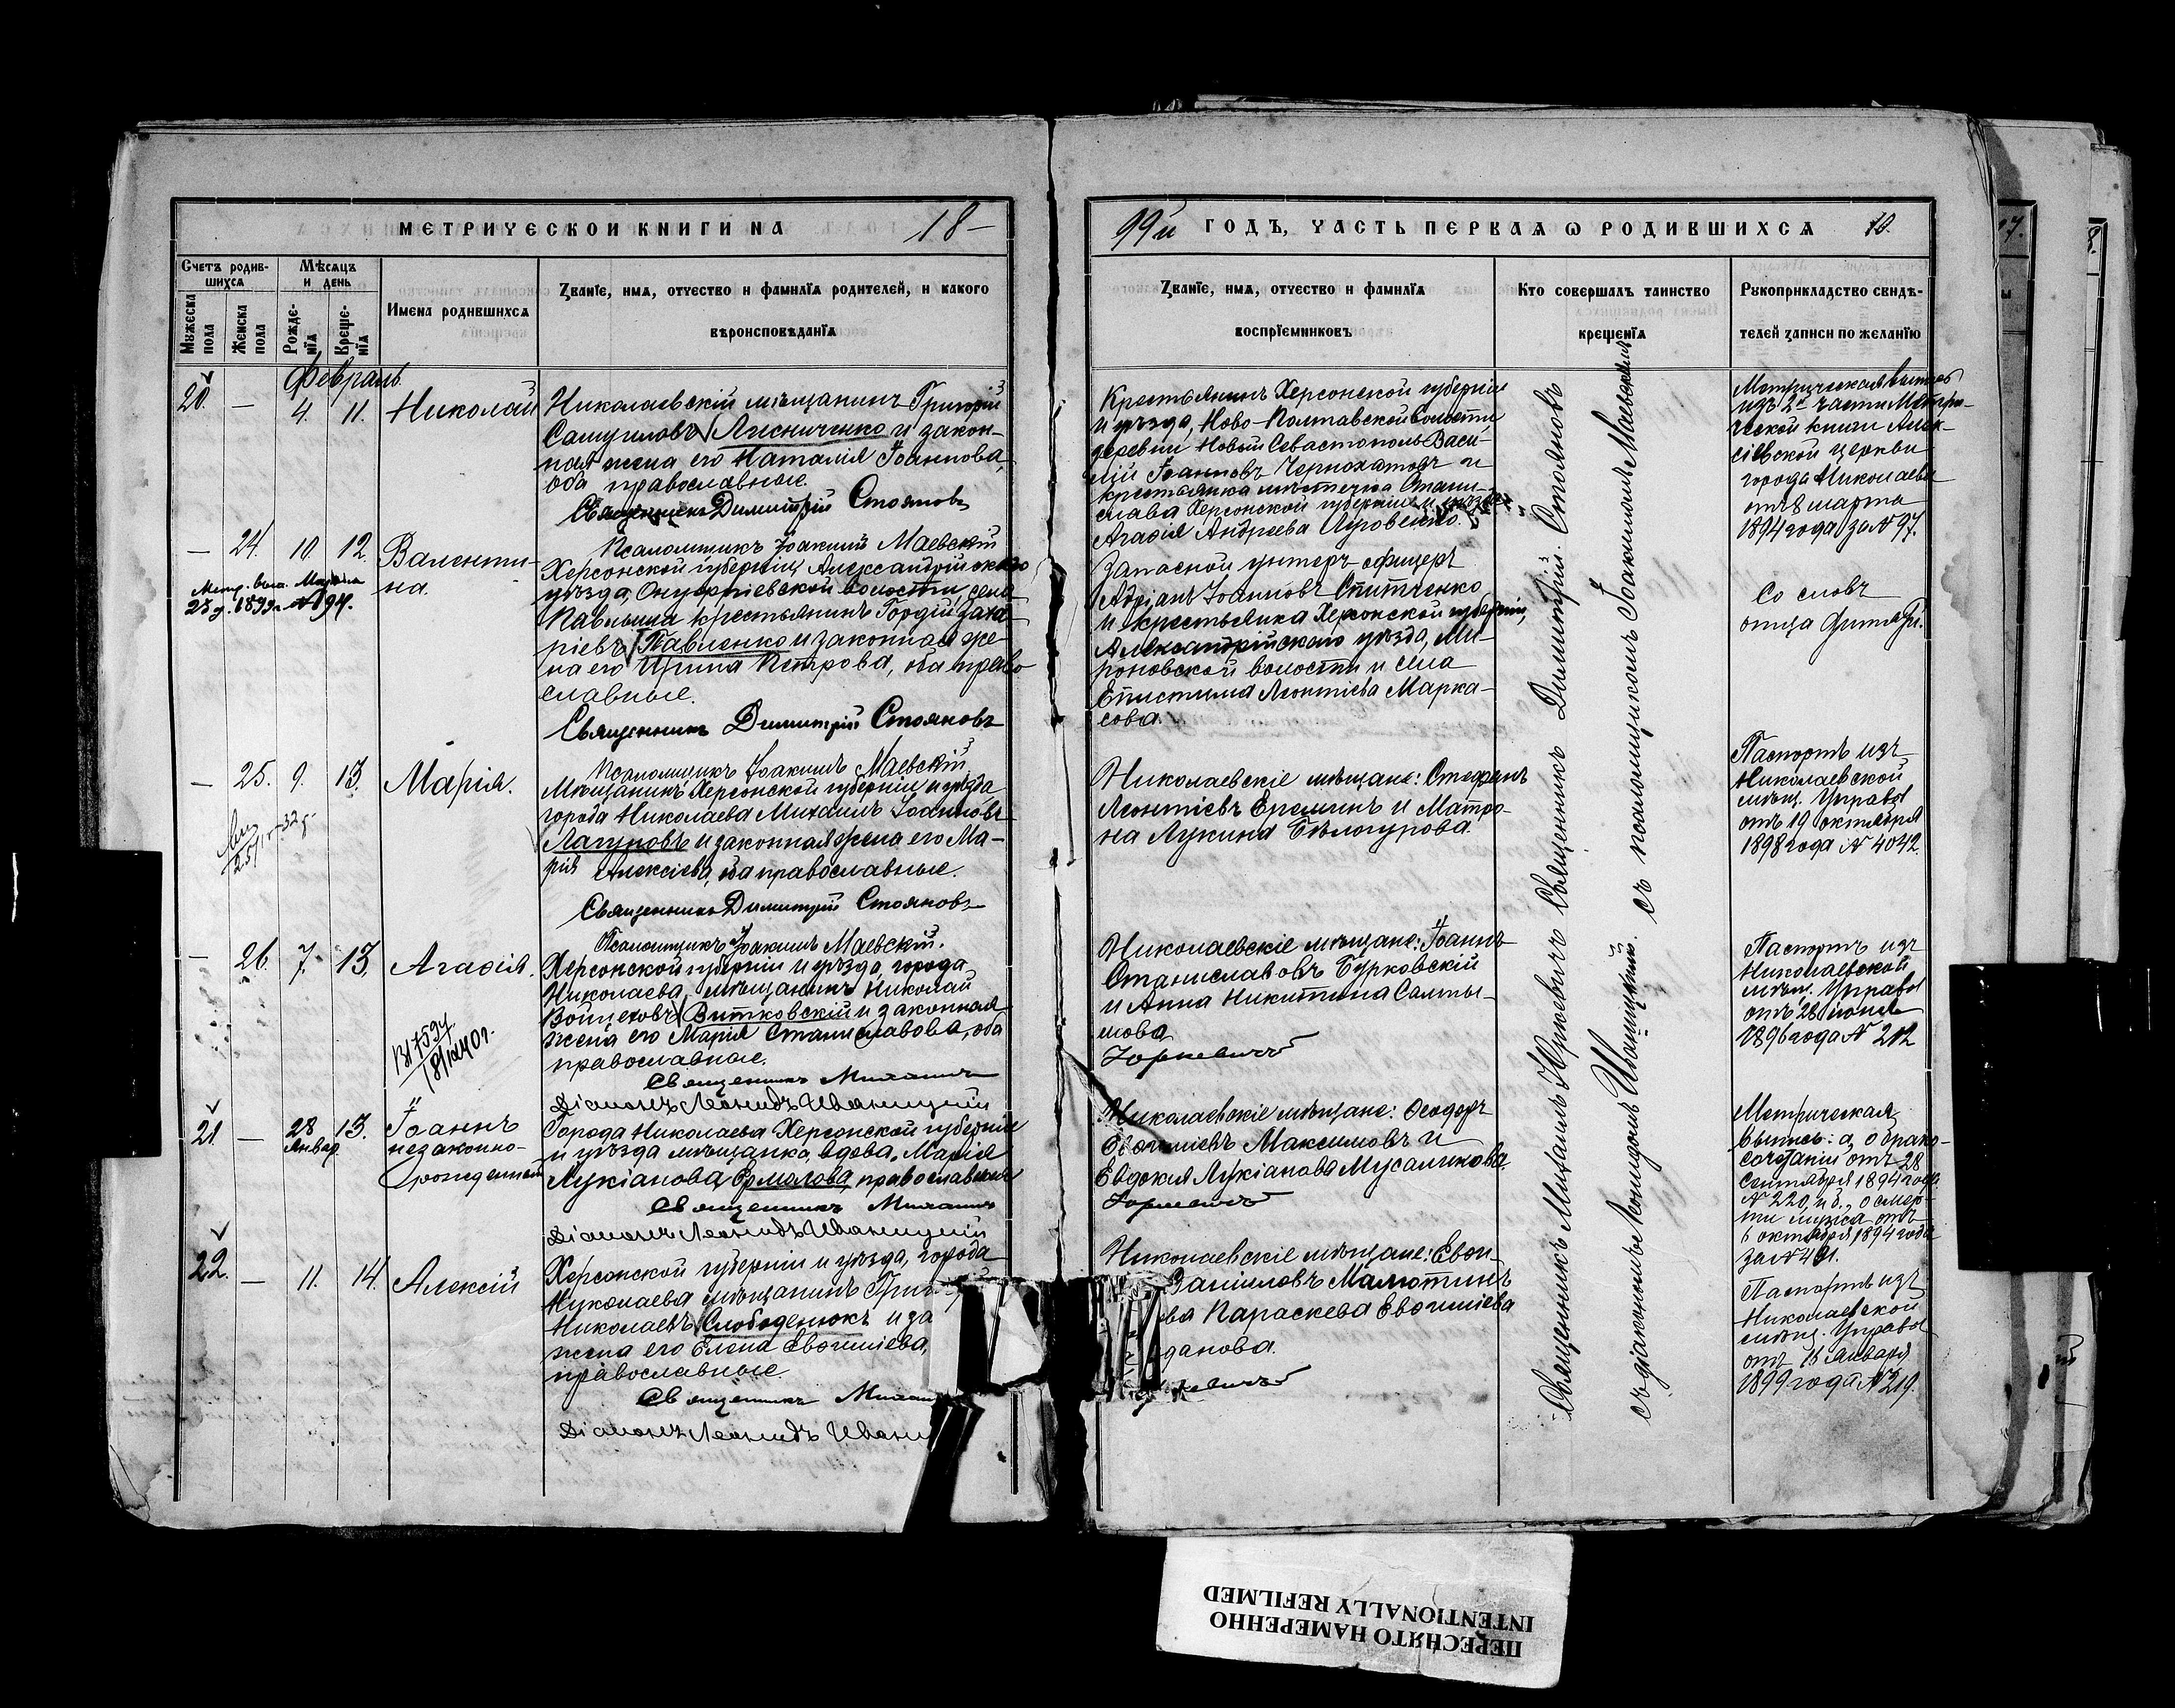 МЕТРИЧЕСКОЙ КНИГИ НА 18-
Счетъ родив-
шихся
Мѣсяцъ
и день
Мужеска
пола
Женска
пола
Рожде-
нія
Креще-
нія
Имена родившихся
Званіе, имя, отчество и фамилія родителей, и какого
вѣроисповѣданія
Февраль.
20. — 4. 11. Николай
Николаевскій мѣщанинъ Григорій
Самуиловъ Лисниченко и закон-
ная жена его Наталія Іоаннова,
оба православные.
Священникъ Димитрій Стояновъ
Псаломщикъ Іоакимъ Маевскій
— 24. 10. 12. Валенти-
на.
Метр. вып. Марта
25 д. 1899 г. № 194.
Херсонской губерніи Александрійскаго
уѣзда, Онуфріевской волости, села
Павлыша крестьянинъ Гордій Заха-
ріевъ Павленко и законная же-
на его Ирина Петрова, оба право-
славные.
Священникъ Димитрій Стояновъ
Псаломщикъ Іоакимъ Маевскій
— 25. 9. 13. Марія.
Мѣщанинъ Херсонской губерніи и уѣзда
города Николаева Михаилъ Іоанновъ
Лагуновъ и законная жена его Ма-
рія Алексіева, оба православные.
Священникъ Димитрій Стояновъ
Псаломщикъ Іоакимъ Маевскій.
— 26. 7. 13. Агафія.
Херсонской губерніи и уѣзда, города
Николаева, мѣщанинъ Николай
Войцеховъ Витковскій и законная
жена его Марія Станиславова, оба
православные.
Священникъ Михаилъ
Діаконъ Леонидъ Иваницкій
21. — 28 Январ. 13. Іоаннъ
незаконно-
рожденный
Города Николаева Херсонской губерніи
и уѣзда мѣщанка, вдова, Марія
Лукіанова Ермалова, православная
Священникъ Михаилъ
Діаконъ Леонидъ Иваницкій
22. — 11. 14. Алексій
Херсонской губерніи и уѣзда, города
Николаева мѣщанинъ Григ
Николаевъ Слободенюкъ и за
жена его Елена Евфиміева,
православные.
Священникъ Михаи
Діаконъ Леонидъ Ивани
99й ГОДЪ, ЧАСТЬ ПЕРВАЯ О РОДИВШИХСЯ 10.
Званіе, имя, отчество и фамилія
воспріемниковъ
Кто совершалъ таинство
крещенія
Рукоприкладство свидѣ-
телей записи по желанію
Крестьянинъ Херсонской губерніи
и уѣзда, Ново-Полтавской волости
деревни Новый Севастополь Васи-
лій Іоанновъ Чернохатовъ и
крестьянка мѣстечка Стани-
слава Херсонской губерніи и уѣзда
Агафія Андреева
Запасной унтеръ-офицеръ
Адріанъ Іоанновъ Спитченко
и крестьянка Херсонской губерніи,
Александрійскаго уѣзда, Ми-
роновской волости и села
Епистимія Леонтіева Марка-
сова.
Николаевскіе мѣщане: Стефанъ
Леонтіевъ Ереминъ и Матро-
на Лукина Бѣлогурова.
Николаевскіе мѣщане: Іоаннъ
Станиславовъ Бурковскій
и Анна Никитина Салты-
кова
Юркевичъ
Николаевскіе мѣщане: Феодоръ
Евфиміевъ Максимовъ и
Евдокія Лукіанова Мусаликова.
Юркевичъ
Николаевскіе мѣщане: Евфи-
Даніиловъ Малютинъ
ва Параскева Евфиміева
данова.
кевичъ
Священникъ Михаилъ Юркевичъ Священникъ Димитрій Стояновъ
съ діакономъ Леонидомъ Иваницкимъ. съ псаломщикомъ Іоакимомъ Маевскимъ
Метрическая выпись
изъ 2й части Метри-
ческой книги Алек-
сіевской церкви
города Николаева
отъ 8 марта
1894 года за № 97.
Со словъ
отца дитяти.
Паспортъ изъ
Николаевской
мѣщ. Управы
отъ 19 октября
1898 года № 4042.
Паспортъ изъ
Николаевской
мѣщ. Управы
отъ 28 іюня
1896 года № 212
Метрическая
выпись: а, о брако-
сочетаніи отъ 28
сентября 1894 года
№ 220, и б., о смер-
ти мужа отъ
6 октября 1894 года
за № 401.
Паспортъ изъ
Николаевской
мѣщ. Управы
отъ 15 Января
1899 года № 219.
ПЕРЕСНЯТО НАМЕРЕННО
INTENTIONALLY REFILMED